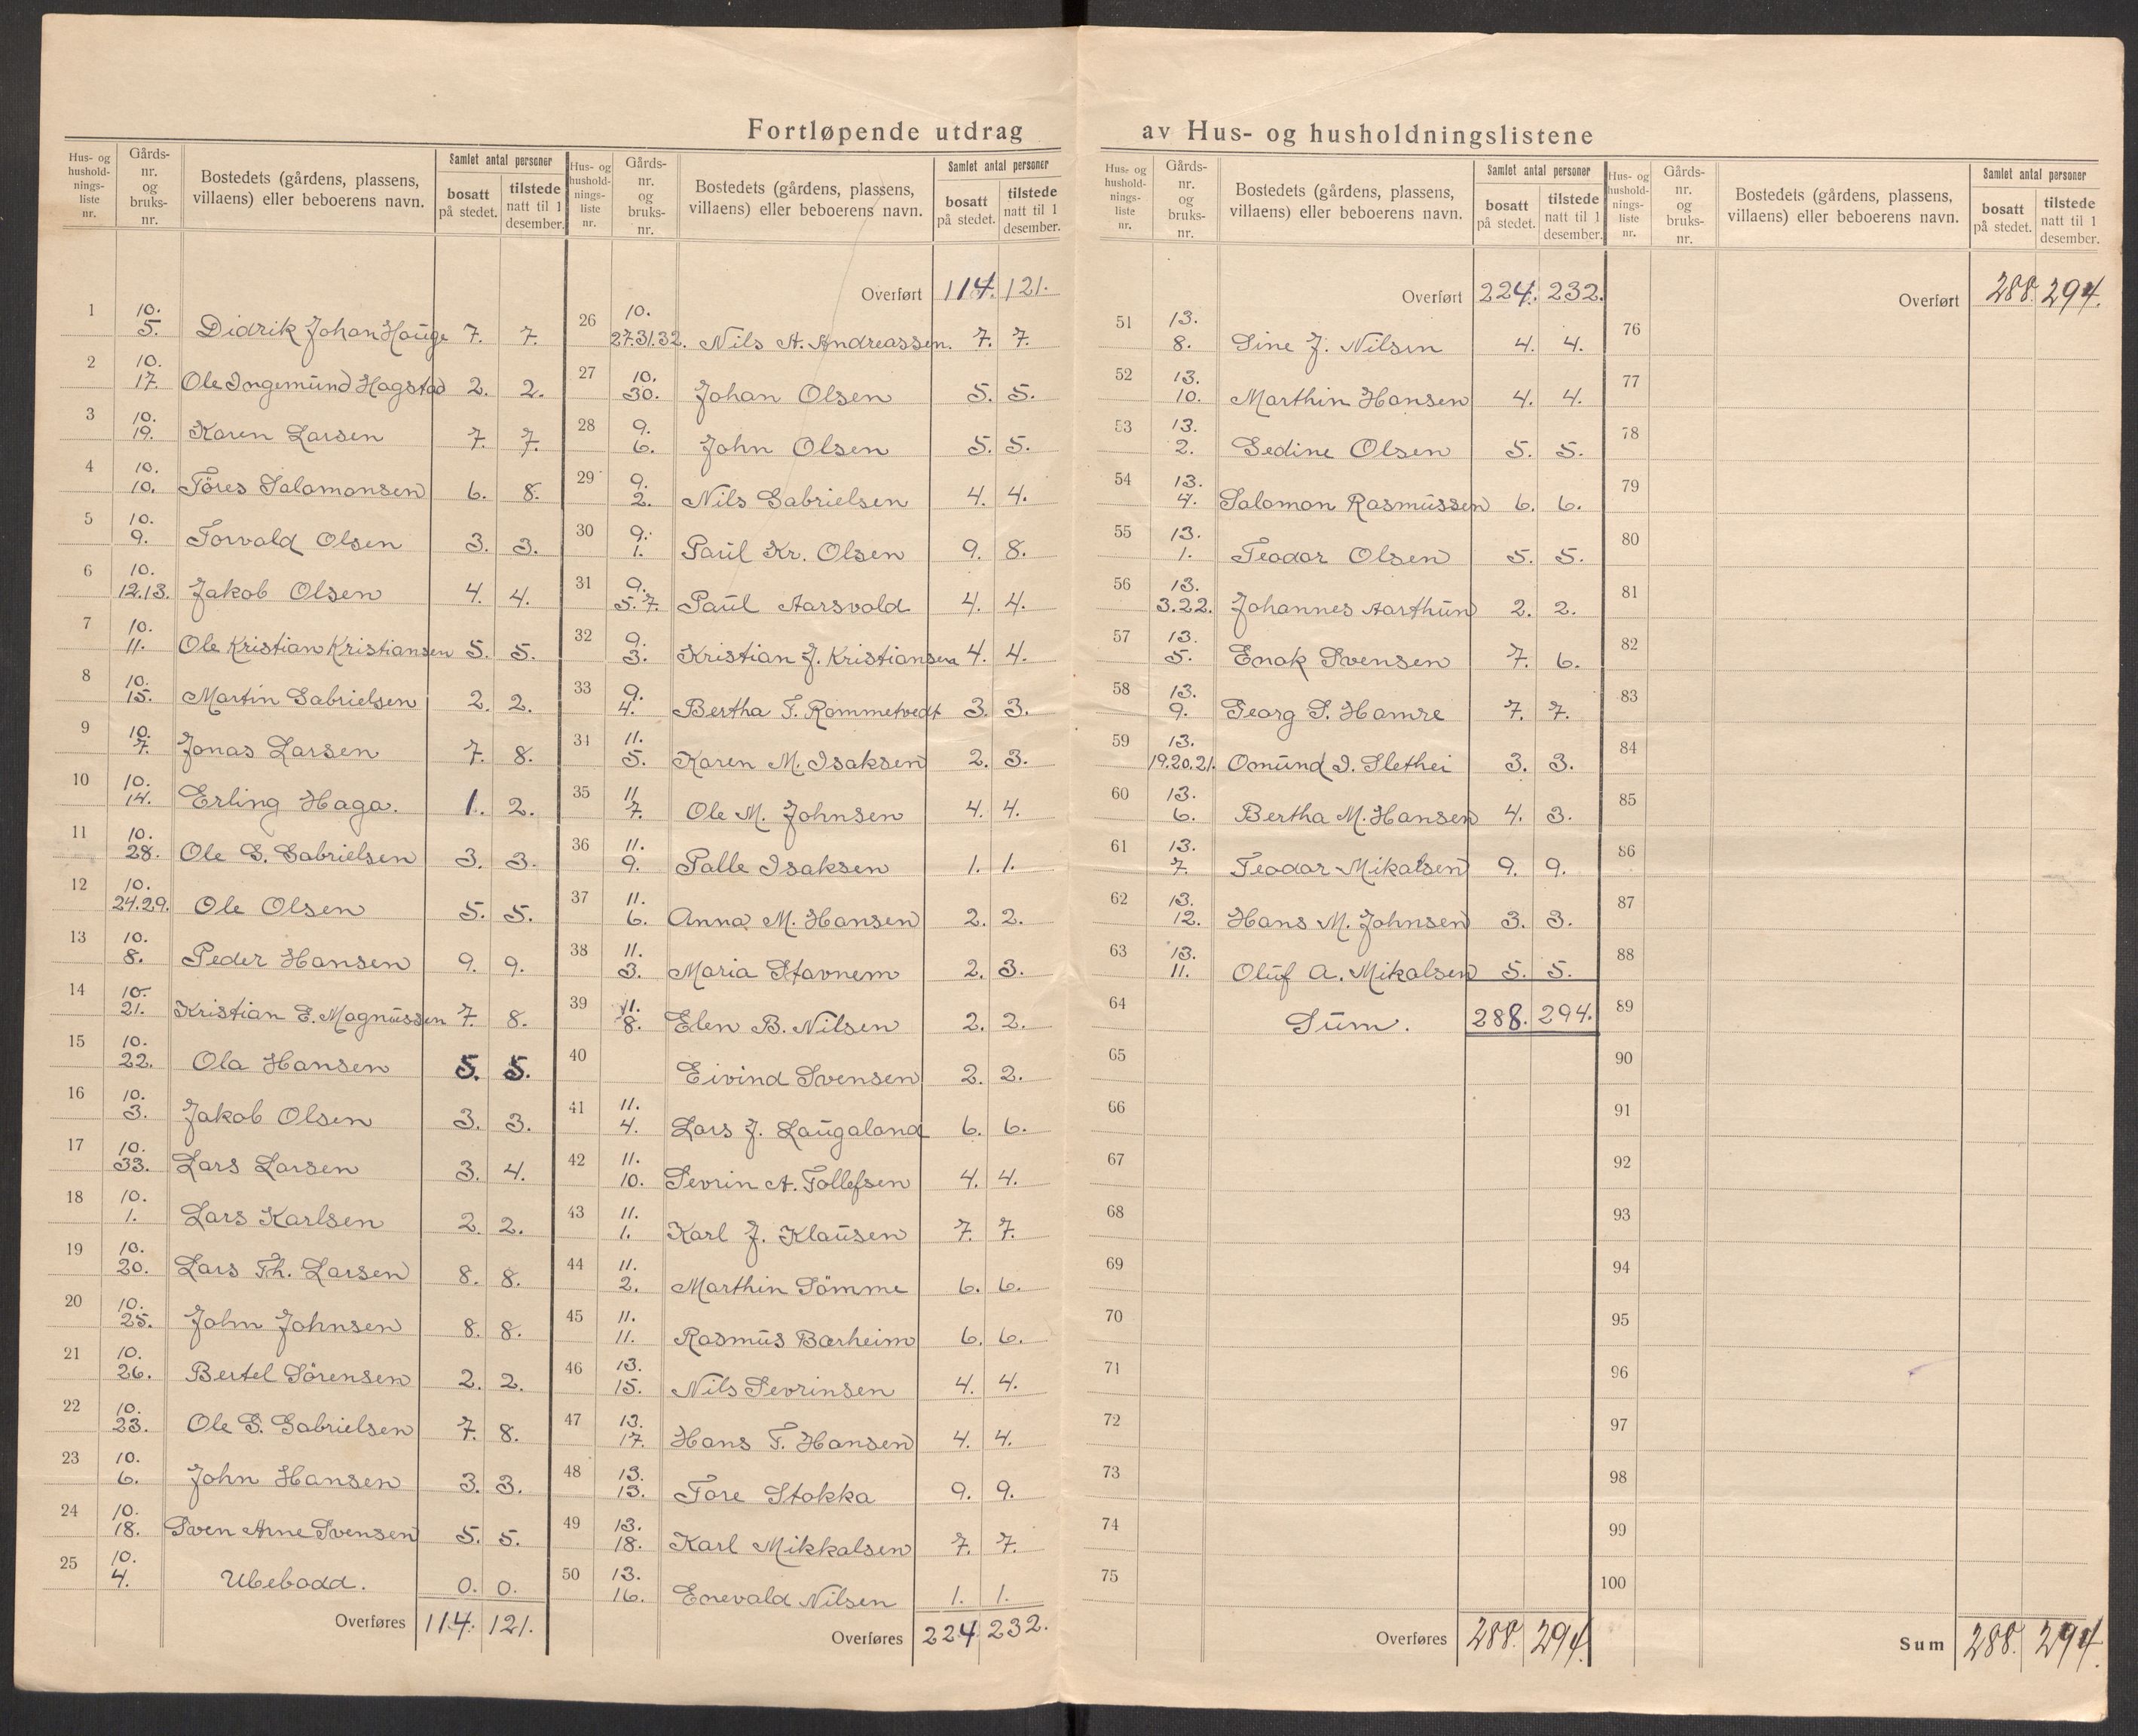 Fortløpende utdrag av Hus- og husholdningslistene
Hus- og husholdnings- liste nr. | Gårds- nr. og bruks- nr. | Bostedets (gårdens, plassens, villaens) eller beboerens navn. | Samlet antal personer bosatt på stedet. | tilstede natt til 1 desember.
1 10. 5. Didrik Johan Hauge 7. 7.
2 10. 17. Ole Ingemund Hagstad 2. 2.
3 10. 19. Karen Larsen 7. 7.
4 10. 10. Töres Salomonsen 6. 8.
5 10. 9. Torvald Olsen 3. 3.
6 10. 12.13. Jakob Olsen 4. 4.
7 10. 11. Ole Kristian Kristiansen 5. 5.
8 10. 15. Martin Gabrielsen 2. 2.
9 10. 7. Jonas Larsen 7. 8.
10 10. 14. Erling Haga. 1. 2.
11 10. 28. Ole G. Gabrielsen 3. 3.
12 10. 24.29. Ole Olsen 5. 5.
13 10. 8. Peder Hansen 9. 9.
14 10. 21. Kristian E. Magnussen 7. 8.
15 10. 22. Ola Hansen 5. 5.
16 10. 3. Jakob Olsen 3. 3.
17 10. 33. Lars Larsen 3. 4.
18 10. 1. Lars Karlsen 2. 2.
19 10. 20. Lars Th. Larsen 8. 8.
20 10. 25. John Johnsen 8. 8.
21 10. 26. Bertel Sörensen 2. 2.
22 10. 23. Ole G. Gabrielsen 7. 8.
23 10. 6. John Hansen 3. 3.
24 10. 18. Sven Arne Svensen 5. 5.
25 10. 4. Ubebodd. 0. 0.
Overføres 114. 121.
Hus- og husholdnings- liste nr. | Gårds- nr. og bruks- nr. | Bostedets (gårdens, plassens, villaens) eller beboerens navn. | Samlet antal personer bosatt på stedet. | tilstede natt til 1 desember.
Overført 114. 121.
26 10. 27.31.32. Nils A. Andreassen. 7. 7.
27 10. 30. Johan Olsen 5. 5.
28 9. 6. John Olsen 5. 5.
29 9. 2. Nils Gabrielsen 4. 4.
30 9. 1. Paul Kr. Olsen 9. 8.
31 9. 5.7. Paul Aarsvold 4. 4.
32 9. 3. Kristian J. Kristiansen 4. 4.
33 9. 4. Bertha T. Rommetvedt 3. 3.
34 11. 5. Karen M. Isaksen 2. 3.
35 11 7. Ole M. Johnsen 4. 4.
36 11. 9. Palle Isaksen 1. 1.
37 11. 6. Anna M. Hansen 2. 2.
38 11. 3. Maria Stavnem 2. 3.
39 11. 8. Elen B. Nilsen 2. 2.
40 Eivind Svensen 2. 2.
41 11. 4. Lars J. Laugaland 6. 6.
42 11. 10. Sevrin A. Tollefsen 4. 4.
43 11. 1. Karl J. Klausen 7. 7.
44 11. 2. Marthin Sömme 6. 6.
45 11. 11. Rasmus Bærheim 6. 6.
46 13. 15. Nils Sevrinsen 4. 4.
47 13. 17. Hans T. Hansen 4. 4.
48 13. 13. Tore Stokka 9. 9.
49 13. 18. Karl Mikkalsen 7. 7.
50 13. 16. Enevald Nilsen 1. 1.
Overføres 224 232.
Hus- og husholdnings- liste nr. | Gårds- nr. og bruks- nr. | Bostedets (gårdens, plassens, villaens) eller beboerens navn. | Samlet antal personer bosatt på stedet. | tilstede natt til 1 desember.
Overført 224. 232.
51 13. 8. Sine J. Nilsen 4. 4.
52 13. 10. Marthin Hansen 4. 4.
53 13. 2. Sedine Olsen 5. 5.
54 13. 4. Salomon Rasmussen 6. 6.
55 13. 1. Teodor Olsen 5. 5.
56 13. 3.22. Johannes Aarthun 2. 2.
57 13. 5. Enok Svensen 7. 6.
58 13. 9. Georg S. Hamre 7. 7.
59 13. 19.20.21. Omund I. Slethei 3. 3.
60 13. 6. Bertha M. Hansen 4. 3.
61 13. 7. Teodor Mikalsen 9. 9.
62 13. 12. Hans M. Johnsen 3. 3.
63 13. 11. Oluf A. Mikalsen 5. 5.
64 Sum. 288. 294.
65
66
67
68
69
70
71
72
73
74
75
Overføres 288. 294.
Hus- og husholdnings- liste nr. | Gårds- nr. og bruks- nr. | Bostedets (gårdens, plassens, villaens) eller beboerens navn. | Samlet antal personer bosatt på stedet. | tilstede natt til 1 desember.
Overført 288. 294.
76
77
78
79
80
81
82
83
84
85
86
87
88
89
90
91
92
93
94
95
96
97
98
99
100
Sum 288. 294.